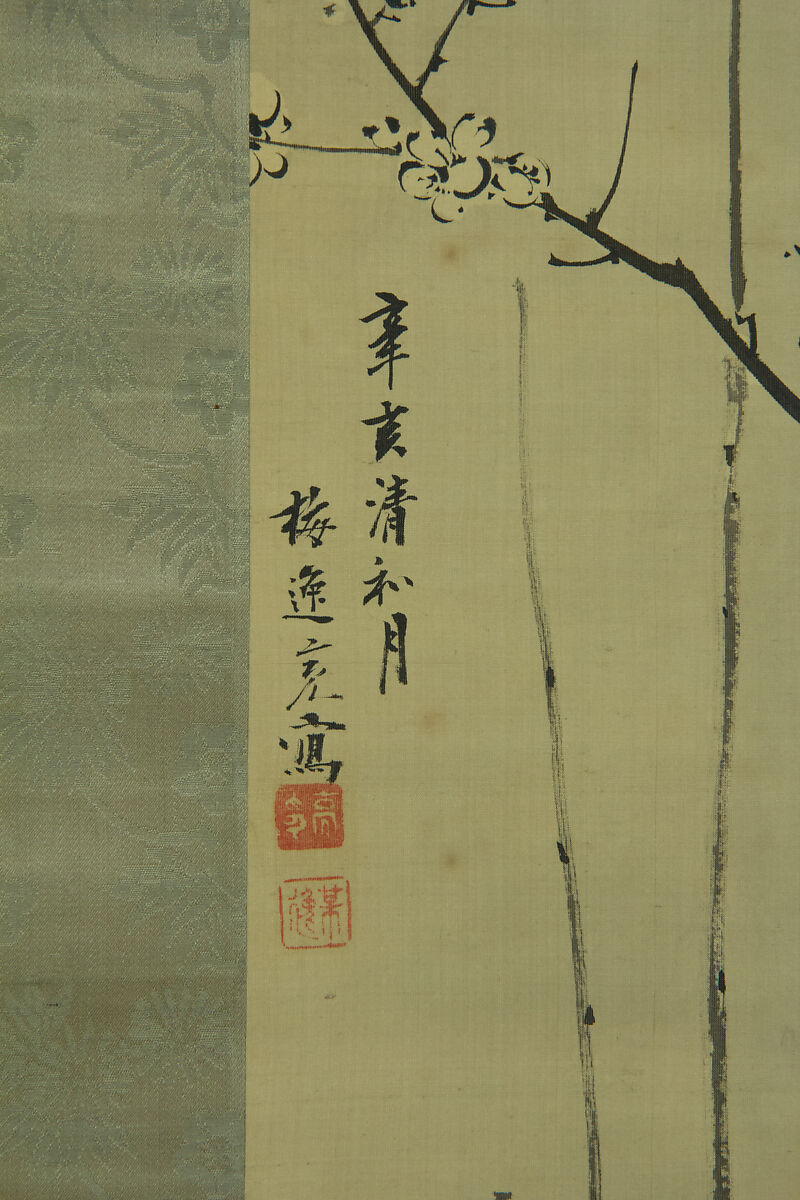 辛亥清和月
梅逸亮寫